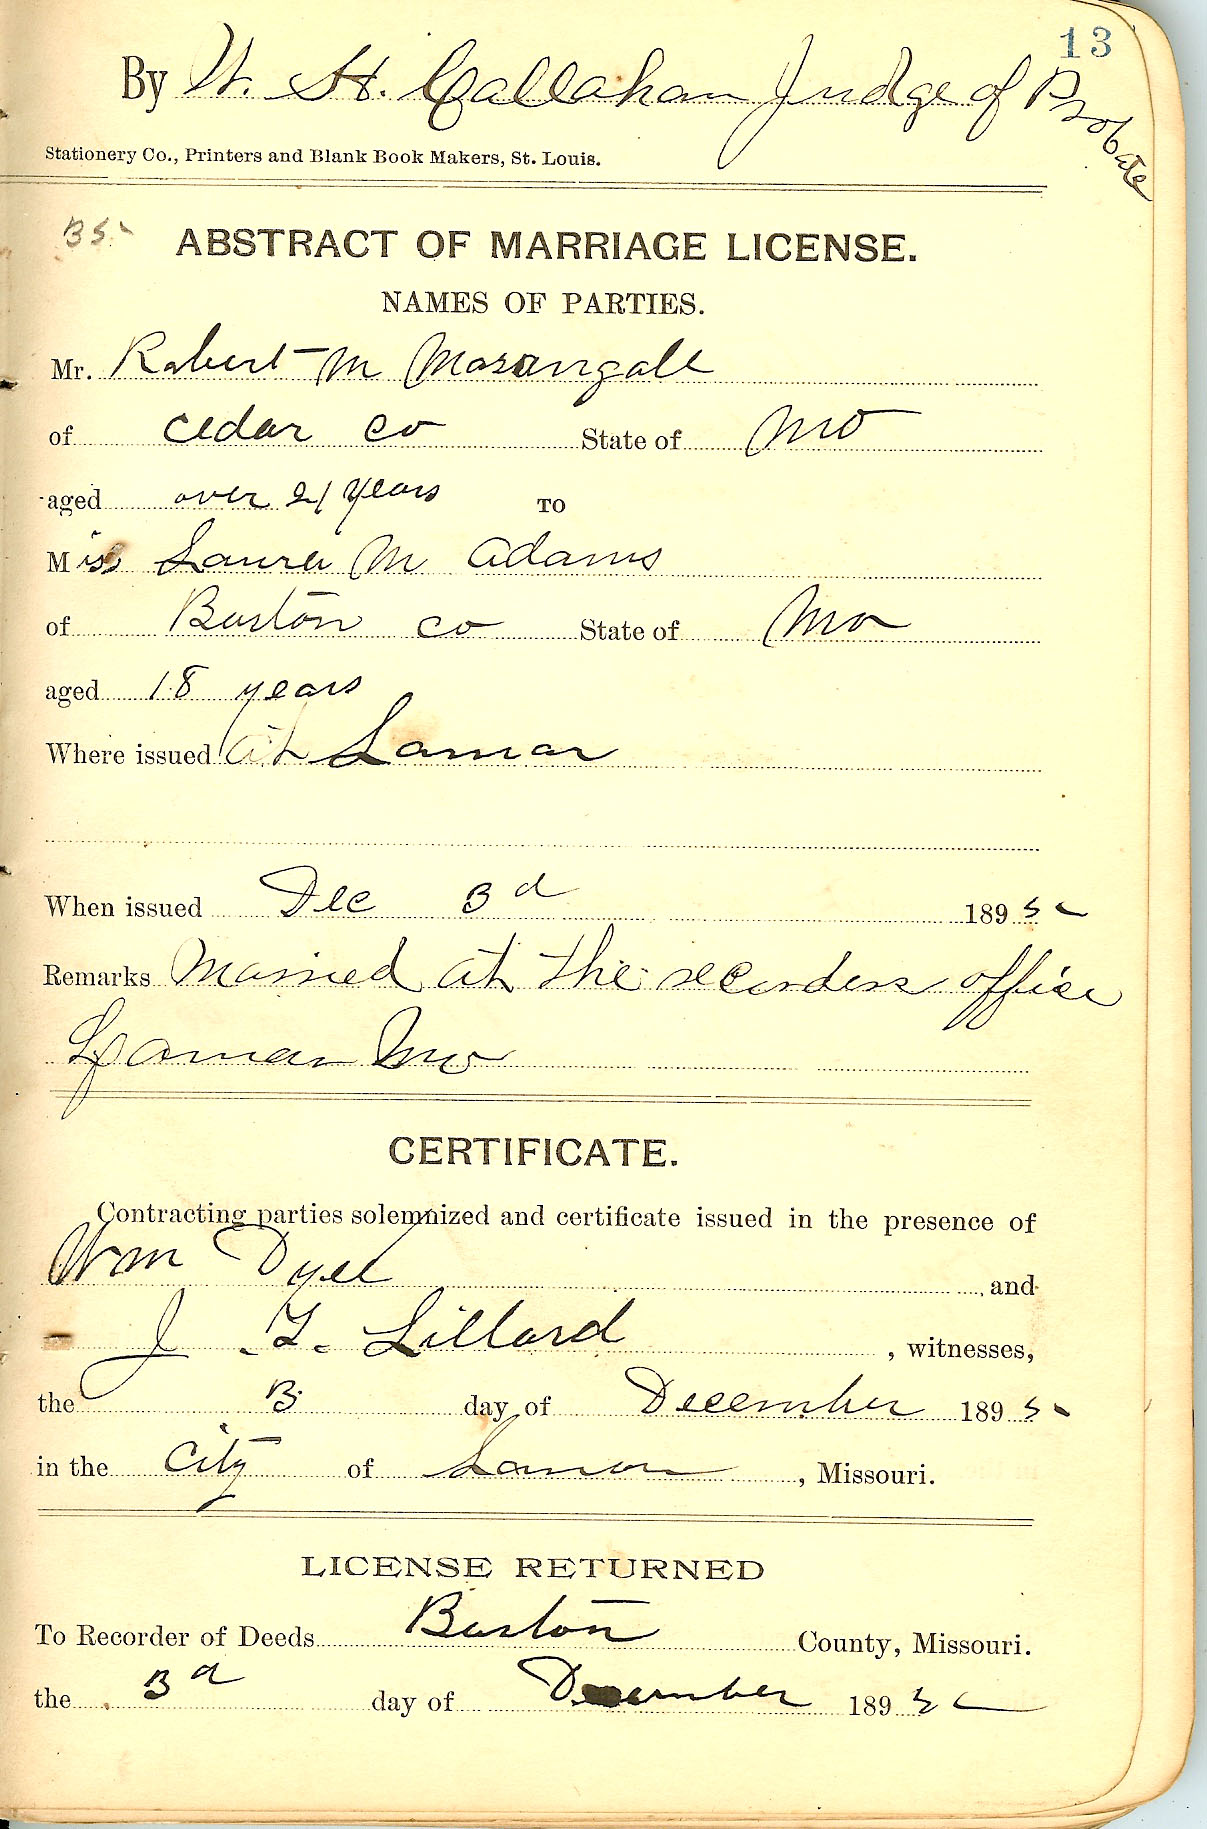 13
By W. H. Callahan Judge of Probate
Stationery Co., Printers and Blank Book Makers, St. Louis.
ABSTRACT OF MARRIAGE LICENSE.
NAMES OF PARTIES.
Mr. Robert M
of cedar co State of Mo
aged over 21 years TO
Miss Laura M Adams
of Barton co State of Mo
aged 18 years
Where issued at Lamar
When issued Dec 3d 1895
Remarks Married at the recorders office
Lamar Mo
CERTIFICATE.
Contracting parties solemnized and certificate issued in the presence of
Wm Dyel , and
J. T. Lillard , witnesses,
the 3 day of December 1895
in the City of Lamar , Missouri.
LICENSE RETURNED
To Recorder of Deeds Barton County, Missouri.
the 3d day of December 1895